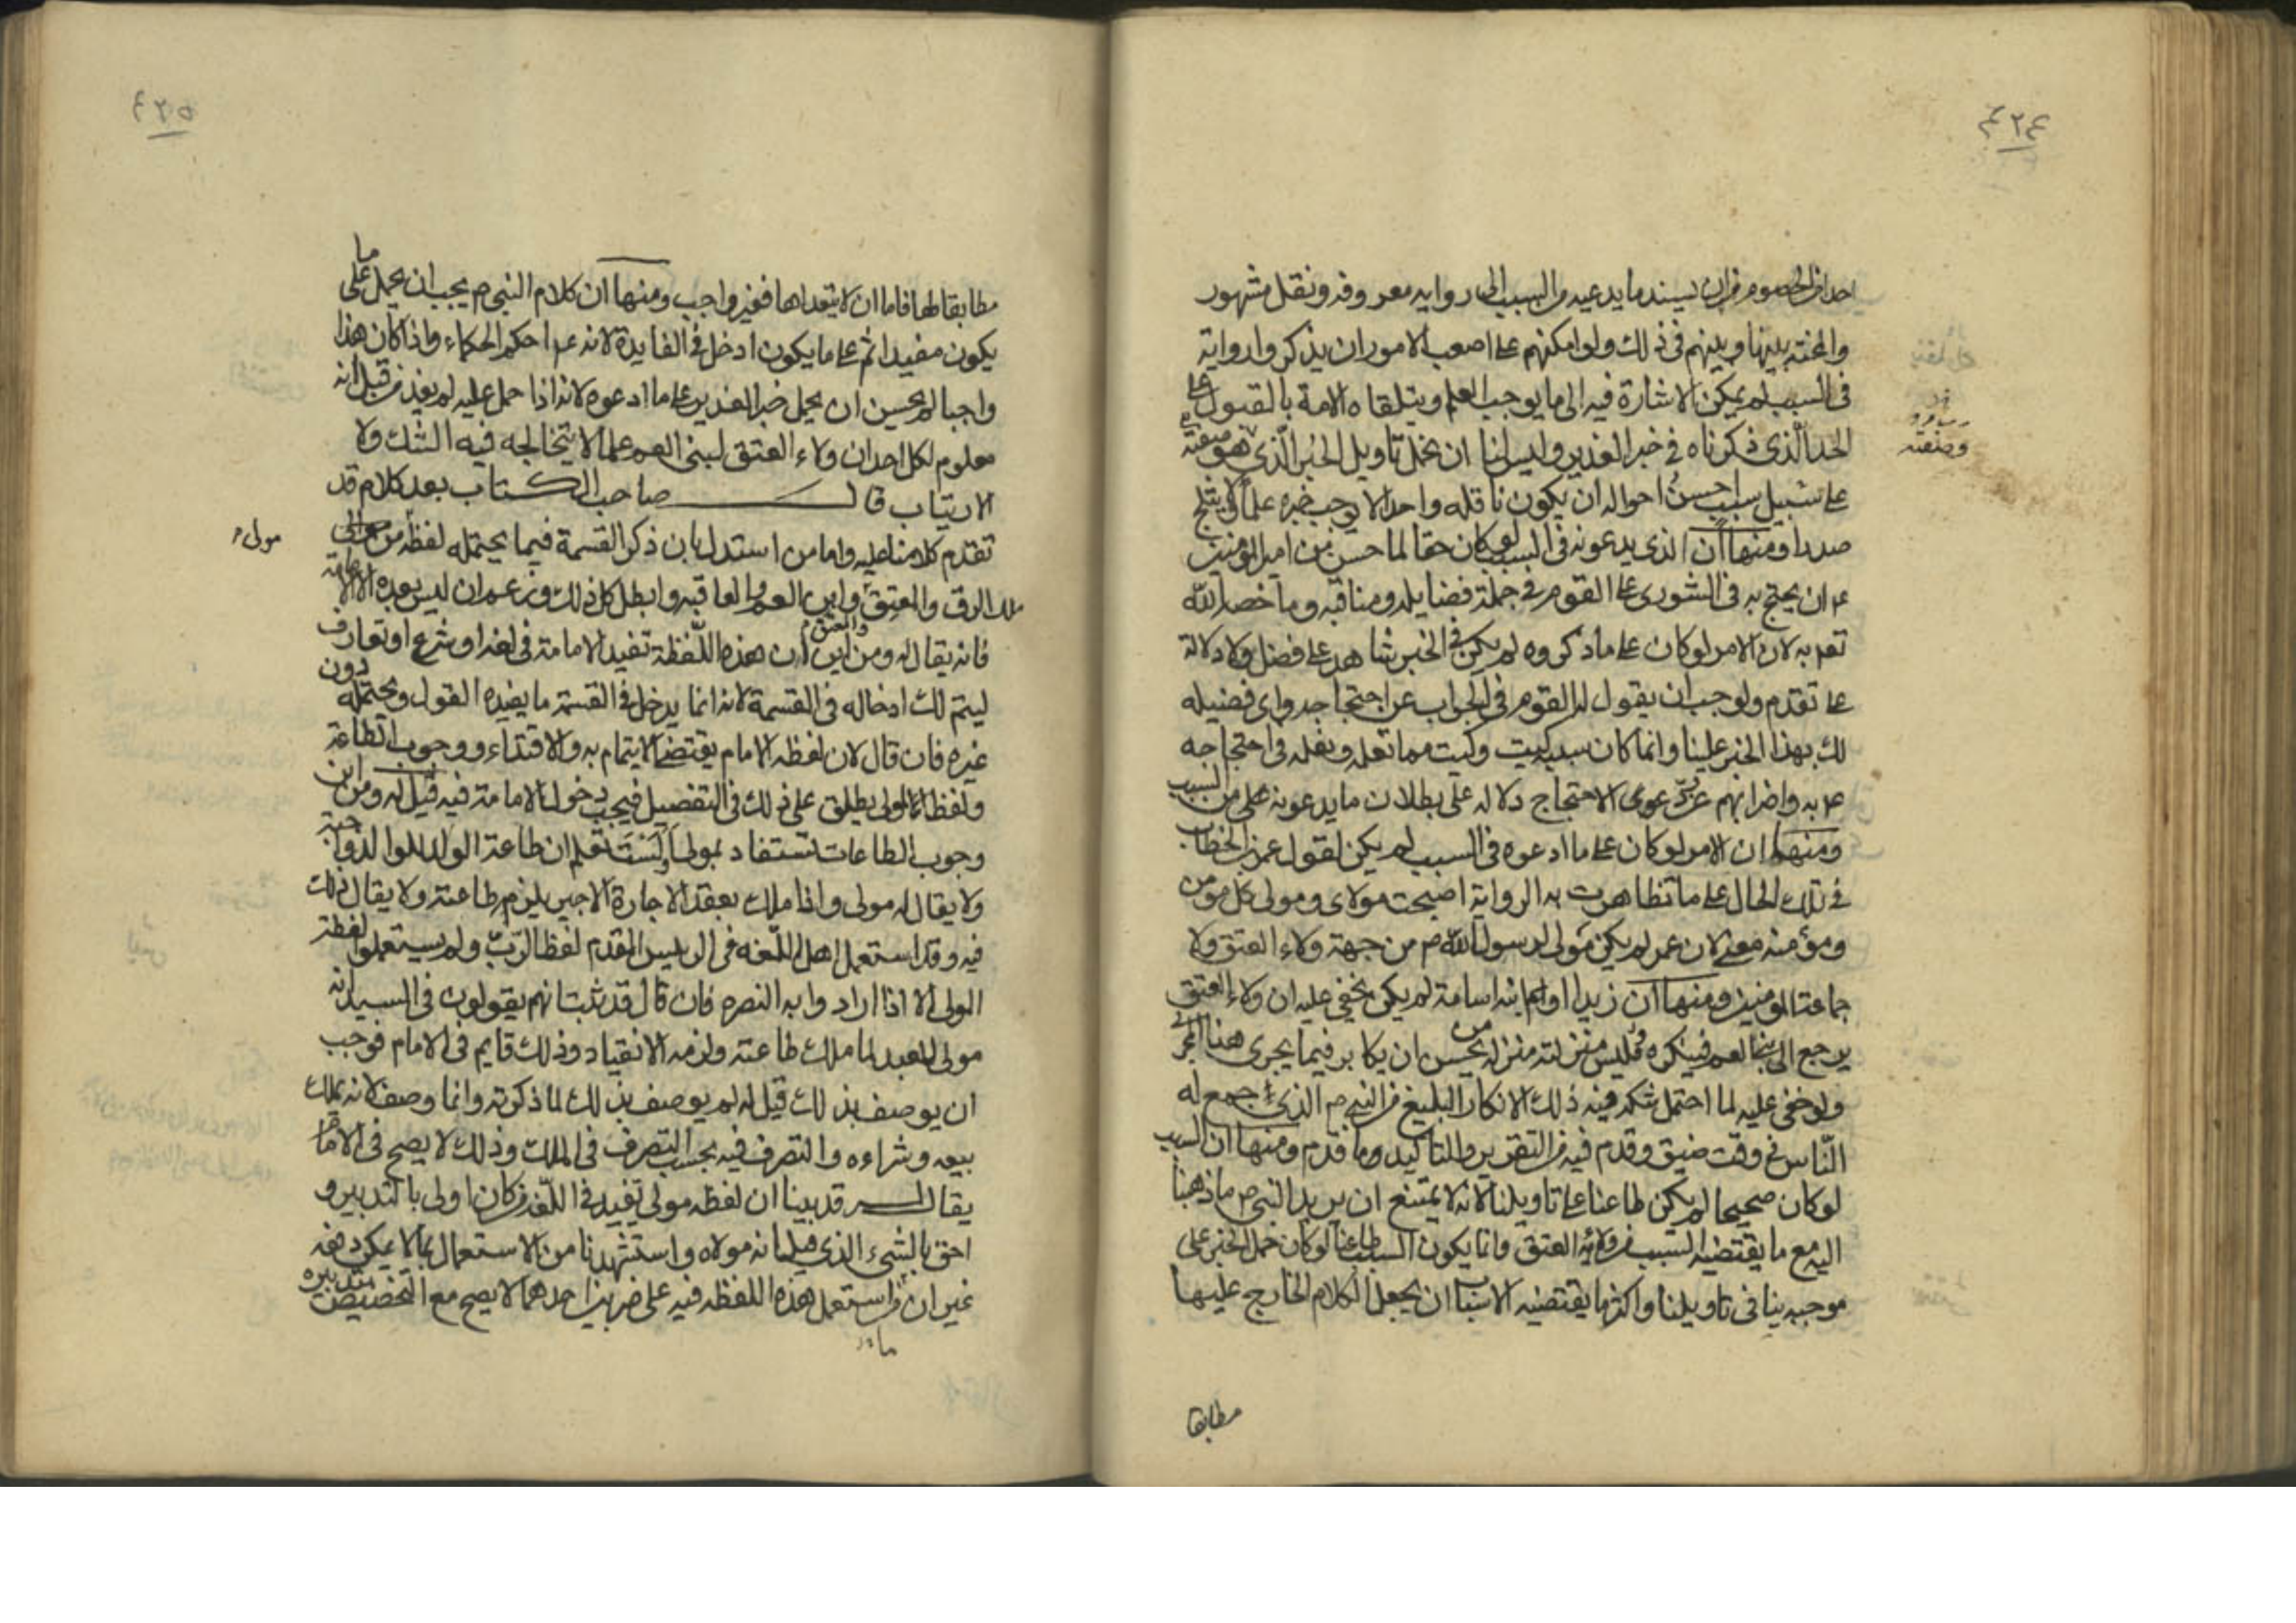 ٤٢٤
احدا من الخصوم من ان يسند ما يدعيه من السبب الى رواية معروفة ونقل مشهور
والمحنة بيننا وبينهم في ذلك ولو امكنهم على اصعب الامور ان يذكروا رواية
في السبب لم يمكن الاشارة فيه الى ما يوجب العلم ويتلقاه الامة بالقبول على
الحد الذي ذكرناه في خبر الغدير وليس لنا ان نحمل تاويل الخبر الذي هو صفته
وصفته
على سبيل سبب احسن احواله ان يكون ناقله واحدا لا يوجب خبره علما ولا يثلج
صدرا ومنها ان الذي يدعونه في السبب لو كان حقا لما حسن من امير المؤمنين
ع ان يحتج به في الشورى على القوم في جملة فضايله ومناقبه وما خصه الله
تعالى به لان الامر لو كان على ما ذكروه لم يكن في الخبر شاهد على فضل ولا دلالة
على تقدم ولوجب ان يقول له القوم في الجواب عن احتجاجه واي فضيلة
لك بهذا الخبر علينا وانما كان سببه كيت وكيت مما تعلمه ونعلمه وفي احتجاجه
ع به واضرابهم عن رد دعوى الاحتجاج دلالة على بطلان ما يدعونه من السبب
ومنها ان الامر لو كان على ما ادعوه في السبب لم يكن لقول عمر بن الخطاب
في تلك الحال على ما تظاهرت به الرواية اصبحت مولاي ومولى كل مؤمن
ومؤمنة معنى لان عمر لم يكن مولى لرسول الله ص من جهة ولاء العتق ولا
جماعة المؤمنين ومنها ان زيدا او ابنه اسامة لم يكن يخفى عليه ان ولاء العتق
يرجع الى بني العم فينكره وليس منزلته منزلة من يحسن ان يكابر فيما يجري هذا المجرى
ولو خفي عليه لما احتمل شكه فيه ذلك الانكار البليغ من النبي ص الذي جمع له
الناس في وقت ضيق وقدم فيه من التقرير والتاكيد وما قدم ومنها ان السبب
لو كان صحيحا لم يكن طاعنا على تاويلنا لانه لا يمتنع ان يريد النبي ص ما ذهبنا
اليه مع ما يقتضيه السبب من ولاية العتق وانما يكون السبب طاعنا لو كان حمل الخبر على
موجبه ينافي تاويلنا واكثر ما يقتضيه الاسباب ان يجعل الكلام الخارج عليها
مطابقا
٤٢٥
مطابقا لها فاما ان لا يتعداها فغير واجب ومنها ان كلام النبي ص يجب ان يحمل على ما
يكون مفيدا ثم على ما يكون ادخل في الفايدة لانه ع احكم الحكماء واذا كان هذا
واجبا لم يحسن ان يحمل خبر الغدير على ما ادعوه لانه اذا حمل عليه لم يفد من قبل انه
معلوم لكل احد ان ولاء العتق لبني العم علما لا يتخالجه فيه الشك ولا
الارتياب قال صاحب الكتاب بعد كلام قد
تقدم كلامنا عليه واما من استدل بان ذكر القسمة فيما يحتمله لفظة من موالى
مولى
ملك الرق والمعتق وابن العم والعاقبة وابطل كل ذلك وزعم ان ليس بعده الا الامامة
فانه يقال له ومن اين ان هذه اللفظة تفيد الامامة في لغة او شرع او تعارف
ليتم لك ادخاله في القسمة لانه انما يدخل في القسمة ما يفيده القول ويحتمله دون
غيره فان قال لان لفظة الامام يقتضي الايتمام به والاقتداء ووجوب الطاعة
ولفظة المولى يطلق على ذلك في التفصيل فيجب دخول الامامة فيه قيل له ومن اين
وجوب الطاعات تستفاد بمولى او لست تعلم ان طاعة الولد للوالد واجبة
ولا يقال له مولى واذا ملك بعقد الاجارة الاجير يلزم طاعته ولا يقال ذلك
فيه وقد استعمل اهل اللغة في الرئيس المقدم لفظ الرب ولم يستعملوا لفظة
المولى الا اذا ارادوا به النصرة فان قال قد ثبت انهم يقولون في السيد انه
مولى للعبد لما ملك طاعته ولزمه الانقياد وذلك قايم في الامام فوجب
ان يوصف بذلك قيل له لم يوصف بذلك لما ذكرته وانما وصف لانه يملك
بيعه وشراءه والتصرف فيه بحسب التصرف في الملك وذلك لا يصح في الامام
يقال له قد بينا ان لفظة مولى تفيد في اللغة من كان اولى بالتدبير و
احق بالشيء الذي قيل انه مولاه واستشهدنا من الاستعمال بما لا يمكن دفعه
غير ان ما استعمل هذه اللفظة فيه على ضربين احدهما لا يصح مع التخصيص بتدبيره